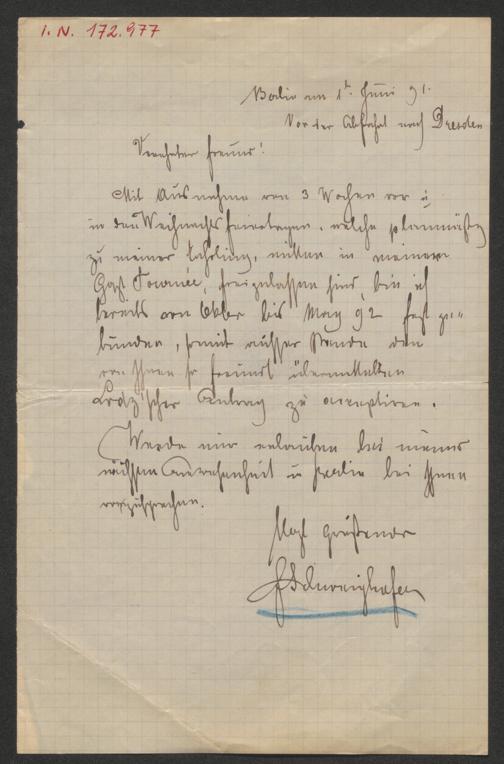 I. N. 172.977
Berlin am 1t. Juni 91.
Vor der Abfahrt nach Dresden
Verehrter Freund!
Mit Ausnahme von 3 Wochen vor u
in den Weihnachtsfeiertagen, welche planmäßig
zu meiner Erholung, mitten in meiner
Gast Tournée, freizulassen sind, bin ich
bereits von Okber bis May 92 fest ge-
bunden, somit außer Stande den
von Ihnen so freundl übermittelten
Antrag zu acceptiren.
Werde mir erlauben bei meiner
nächsten Anwesenheit in Berlin bei Ihnen
vorzusprechen.
Grüßend
Schweighofer